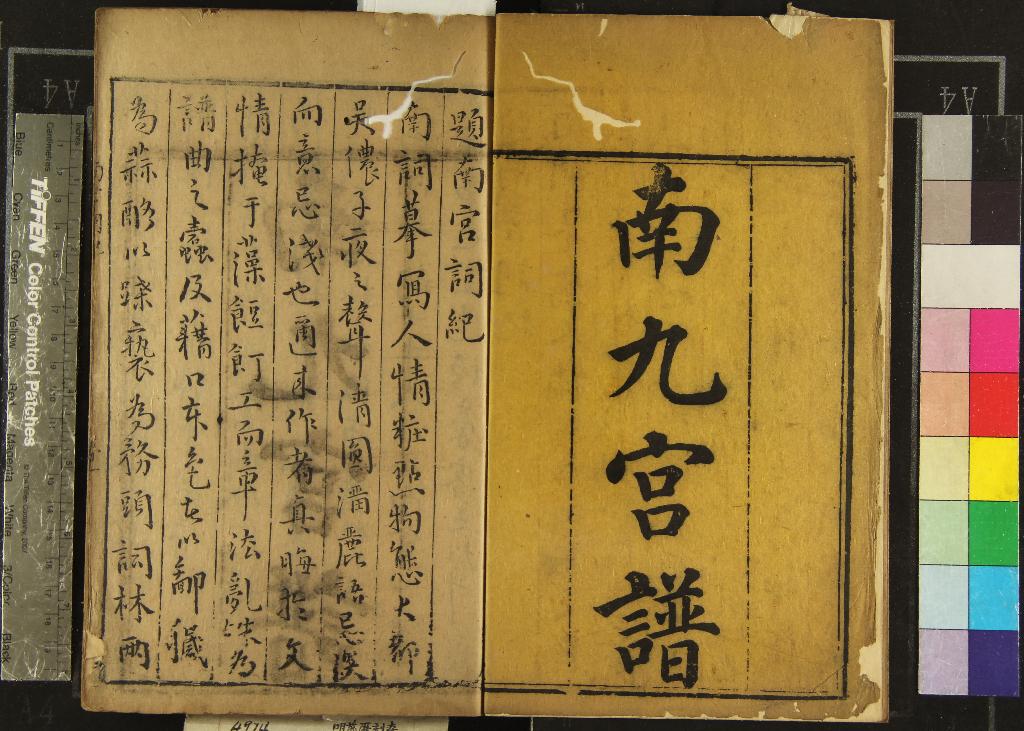 南九宮譜
題南宮詞紀
南詞摹寫人情粧點物態大都
吳儂子夜之聲清圓瀏麗語忌深
而意忌淺也邇來作者真晦於文
情掩于藻飣餖工而章法亂
譜曲之蠹及藉口本色者以鄙穢
為蒜酪以蹂褻為務頭詞林兩
TiFFEN Color Control Patches
Centimetres
Inches
Blue
Cyan
Green
Yellow
Red
Magenta
White
3/Color
Black
A4
A4
A4
4974